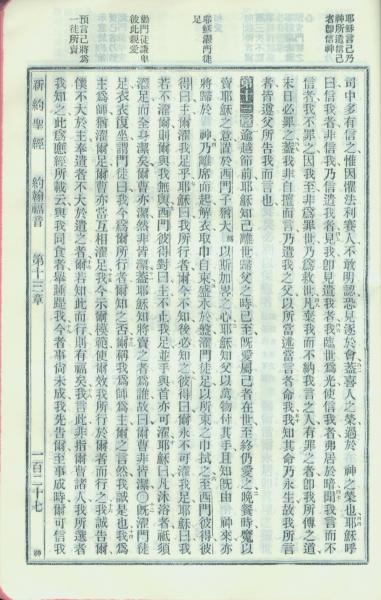 耶穌言己乃
神所遣信己
者卽信神
耶穌濯門徒
足
勸門徒謙卑
彼此親愛
預言己將爲
一徒所賣
司中多有信之惟因懼法利賽人不敢明認恐見逐於會蓋喜人之榮過於 神之榮也耶穌呼
曰信我者非信我乃信遣我者見我卽見遣我者我臨世爲光使信我者弗居於暗聞我言而不
信者我不罪之因我至非爲罪世乃爲救世凡棄我而不納我言之人有罪之者卽我所傳之道
末日必罪之蓋我非自擅而言乃遣我之父以所當述當言者命我我知其命乃永生故我所言
者皆遵父所告我而言也
第十三章 逾越節前耶穌知己離世歸父之時已至旣愛屬己者在世至終仍愛之晚餐時魔以
賣耶穌之意置於西門子猶大以斯加畧之心耶穌知父以萬物付其手且知旣由 神來亦
將歸於 神乃離席而起解衣取巾自束盛水於盤濯門徒足以所束之巾拭之至西門彼得彼
得曰主爾濯我足乎耶穌曰我所行者爾今不知後必知之彼得曰爾永不可濯我足耶穌曰我
若不濯爾則爾與我無與西門彼得對曰主不止我足並手與首亦可濯耶穌曰凡沐浴者祇須
濯足而全身潔矣爾曹亦潔然非皆潔蓋耶穌知將賣之者爲誰故曰爾曹非皆潔○旣濯門徒
足衣衣復坐謂門徒曰我今爲爾所行者爾知之否爾稱我爲師爲主爾之言然我誠是也我爲
主爲師猶濯爾足爾曹亦當互相濯足我今示爾模範使爾效我所行於爾者而行之我誠告爾
僕不大於主奉遣者不大於遣之者爾若知此而行則有福矣我言此非指爾曹諸人我所選者
我知之此爲應經所載云與我同食者舉踵踶我今者事尚未成我先告爾至事成時爾可信我
新約聖經 約翰福音 第十三章 一百二十七